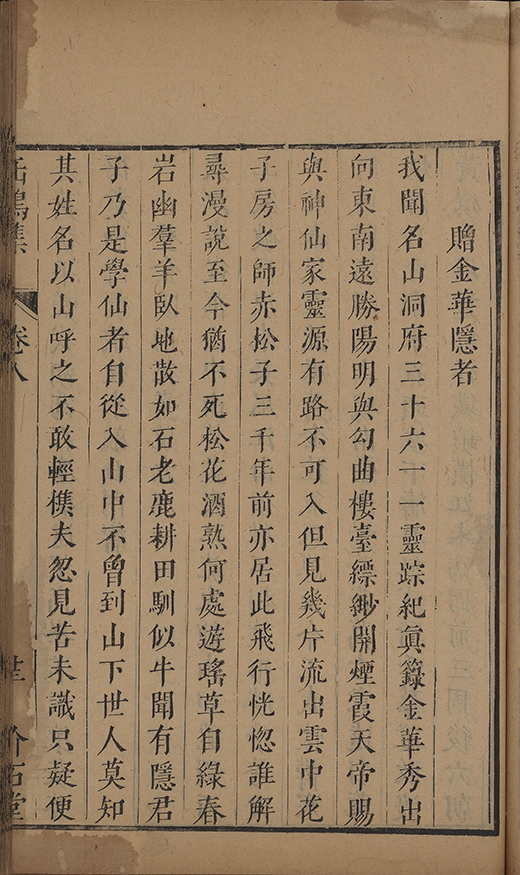 贈金華隱者
我聞名山洞府三十六一一靈踪紀眞籙金華秀出
向東南遠勝陽明與勾曲樓臺縹緲開煙霞天帝賜
與神仙家靈源有路不可入但見幾片流出雲中花
子房之師赤松子三千年前亦居此飛行恍惚誰解
尋漫說至今猶不死松花酒熟何處遊瑤草自綠春
岩幽羣羊臥地散如石老鹿耕田馴似牛聞有隱君
子乃是學仙者自從入山中不曾到山下世人莫知
其姓名以山呼之不敢輕樵夫忽見苦未識只疑便
鳴集 卷八 廿 介石堂